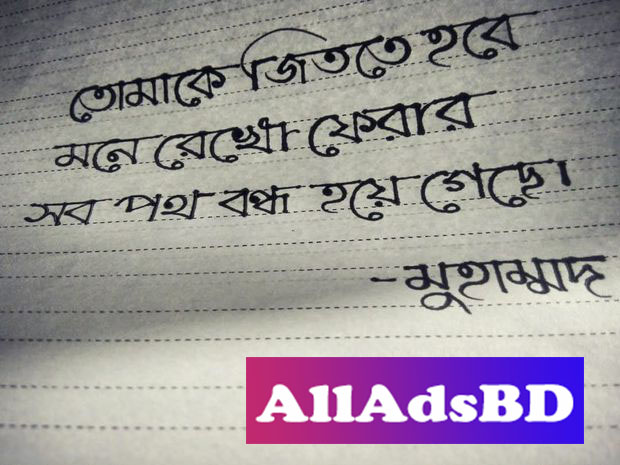 তোমাকে জিততে হবে
মনে রেখো ফেরার
সব পথ বন্ধ হয়ে গেছে।
-মুহাম্মাদ
AllAdsBD